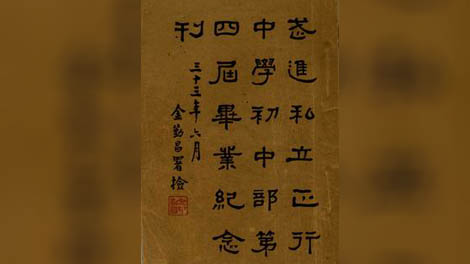 武進私立正行
中學初中部第
四屆畢業紀念
刊
三十三年六月
金勤昌署檢